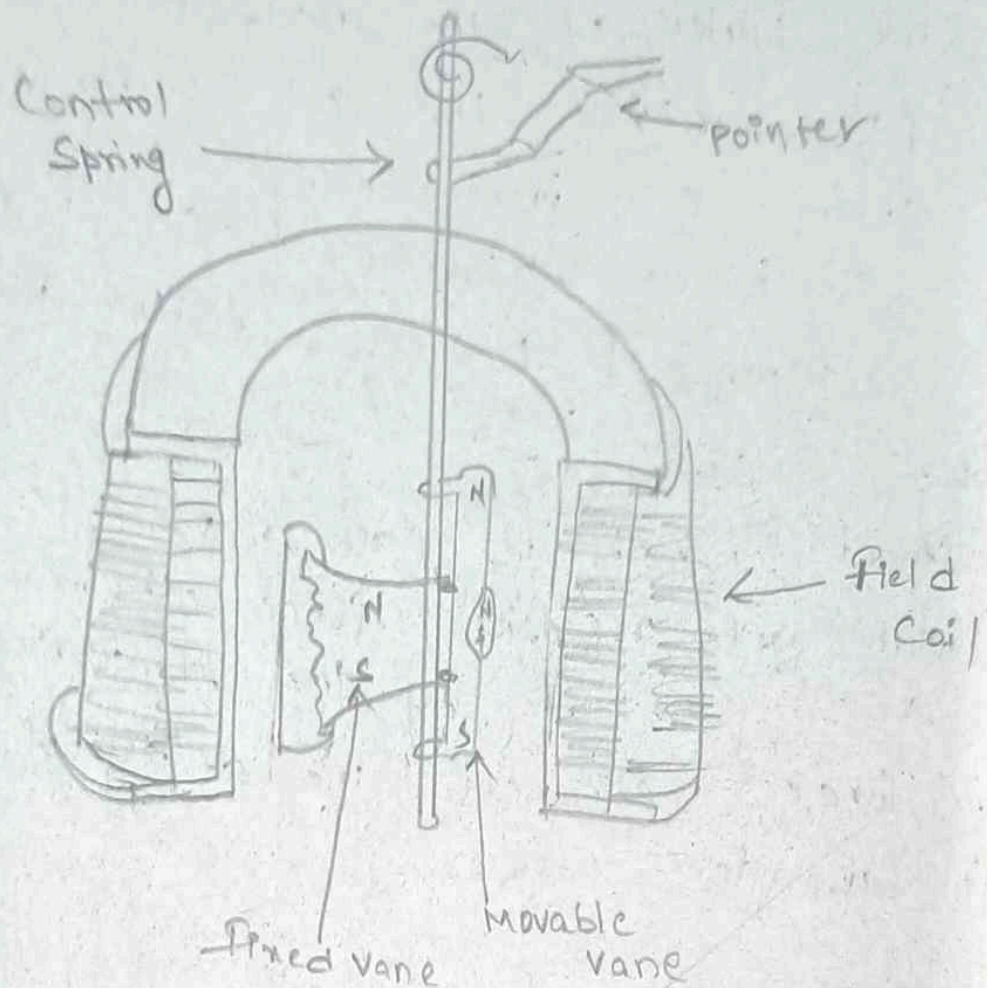 Control
Spring
pointer
N
N
S
S
Field
Coil
Fixed vane
Movable
vane